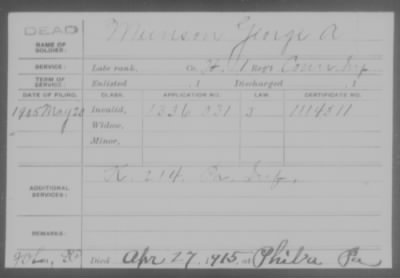 DEAD
Munson George A
NAME OF SOLDIER:
SERVICE: Late rank, Co. H, 1 Reg't Conn. Inf.
TERM OF SERVICE: Enlisted , 1 Discharged , 1
DATE OF FILING. CLASS. APPLICATION NO. LAW. CERTIFICATE NO.
1905 May 20 Invalid, 1336 031 1114511
Widow,
Minor,
K. 214. Pa. Inf.
ADDITIONAL SERVICES:
REMARKS:
Died Apr 27, 1915, at Phila Pa